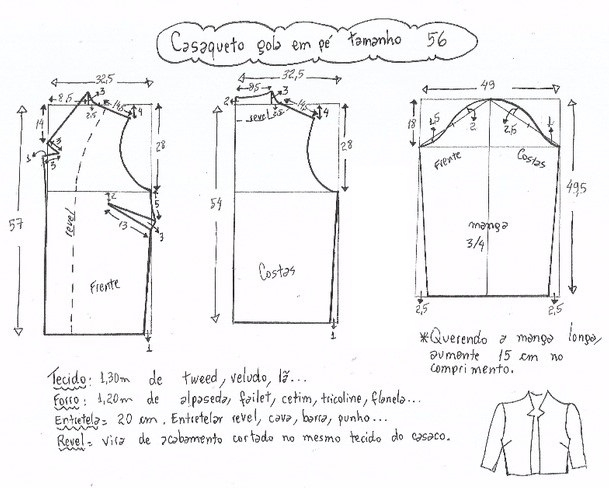 Casaqueto gola em pé tamanho 56
32,5
8,5
3
2,5
14,5
4
14
3
3
3
28
57
revel
2
5
13
3
Frente
1
32,5
8,5
3
2
2,5
14,5
4
revel
28
54
Costas
1
49
18
1,5
2
2,5
1
Frente
Costas
49,5
manga
3/4
2,5
2,5
*Querendo a manga longa,
aumente 15 cm no
comprimento.
Tecido: 1,30m de tweed, veludo, lã...
Forro: 1,20m de alpaseda, failet, cetim, tricoline, flanela...
Entretela = 20 cm. Entretelar revel, cava, barra, punho...
Revel = vira de acabamento cortado no mesmo tecido do casaco.